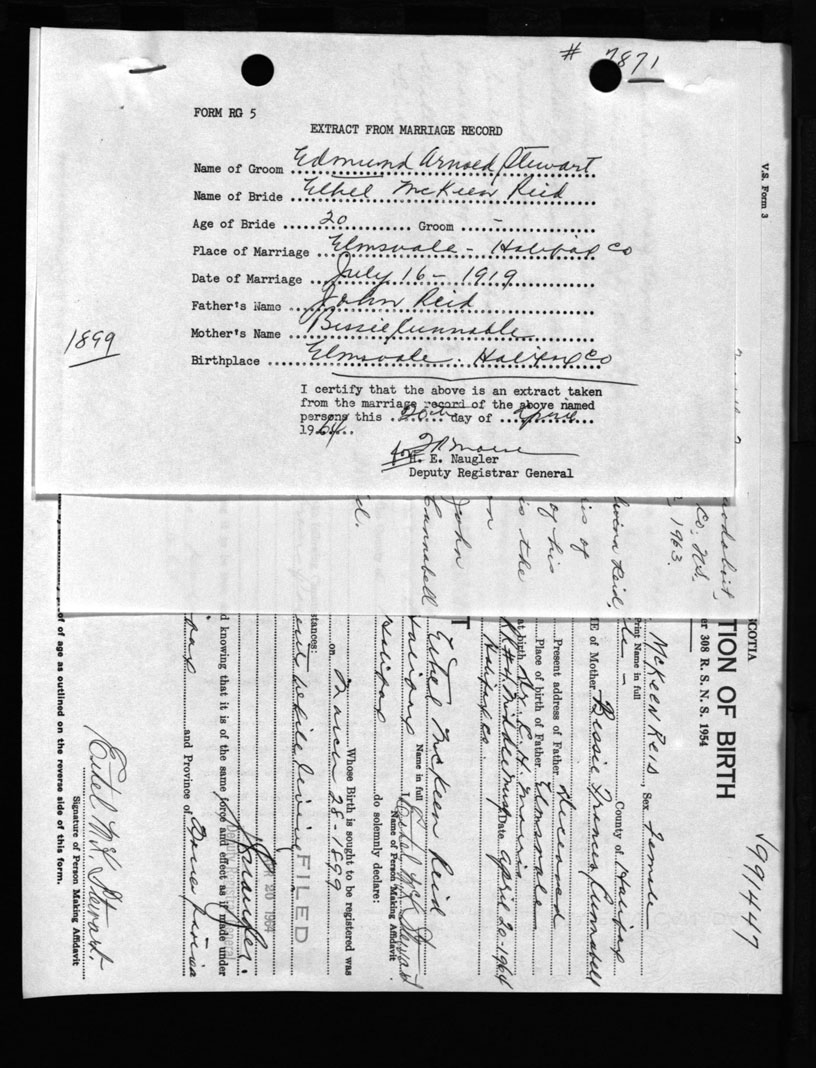 # 7871
FORM RG 5
EXTRACT FROM MARRIAGE RECORD
Name of Groom Edmund Arnold Stewart
Name of Bride Ethel McKeen Reid
Age of Bride 20 Groom -
Place of Marriage Elmsvale - Halifax Co
Date of Marriage July 16 - 1919
Father's Name John Reid
Mother's Name Bessie Cunnable
Birthplace Elmsvale. Halifax Co
1899
I certify that the above is an extract taken
from the marriage record of the above named
persons this 20th day of April
1964
for H. E. Naugler
Deputy Registrar General
V.S. Form 3
Co. N.S.
1963
Reid,
is of
of his
is the
John
Cannabell
d.
SCOTIA
TION OF BIRTH
er 308 R. S. N. S. 1954
V991447
McKeen Reid, Sex Female
Print Name in full
County of Halifax
ME of Mother Bessie Frances Cunnabell
Present address of Father Deceased
Place of birth of Father Elmsvale
at birth
Middle Musq Date April 20. 1964
Halifax Co.
T
Ethel McKeen Reid
Name in full
I, Ethel McK Stewart
Name of Person Making Affidavit
Halifax
do solemnly declare:
Whose Birth is sought to be registered was
on March 28 - 1899
stances:
while living
FILED
20 1964
Deputy Registrar General
d knowing that it is of the same force and effect as if made under
and Province of Nova Scotia
Ethel McK. Stewart.
Signature of Person Making Affidavit
of of age as outlined on the reverse side of this form.